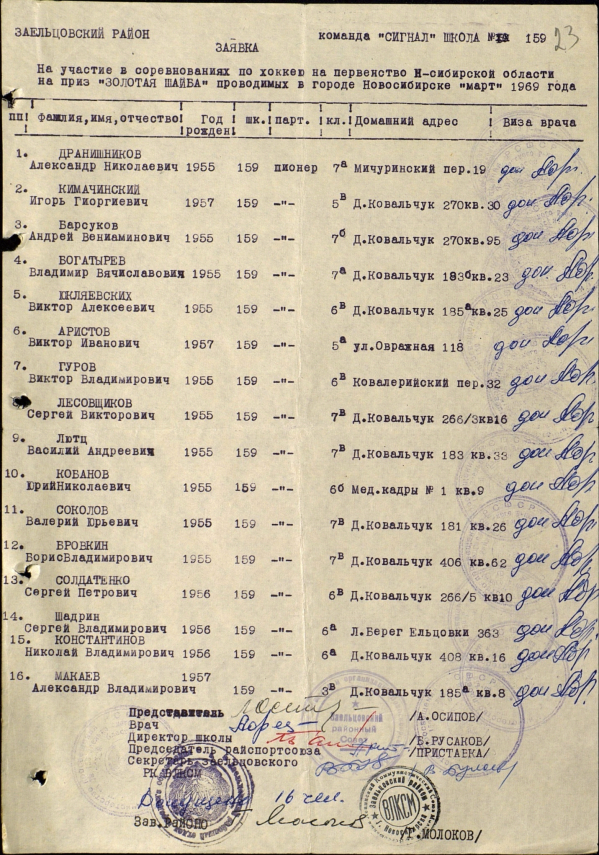 ЗАЕЛЬЦОВСКИЙ РАЙОН команда "СИГНАЛ" ШКОЛА № 159 23
ЗАЯВКА
На участие в соревнованиях по хоккею на первенство Н-сибирской области
на приз "ЗОЛОТАЯ ШАЙБА" проводимых в городе Новосибирске "март" 1969 года
№ пп! Фамилия,имя,отчество! Год рожден! шк.! парт. ! кл.! Домашний адрес ! Виза врача
1. ДРАНИШНИКОВ
Александр Николаевич 1955 159 пионер 7а Мичуринский пер.19 доп
2. КИМАЧИНСКИЙ
Игорь Гиоргиевич 1957 159 -"- 5в Д.Ковальчук 270кв.30 доп
3. Барсуков
Андрей Вениаминович 1955 159 -"- 7б Д.Ковальчук 270кв.95 доп
4. БОГАТЫРЕВ
Владимир Вячиславович 1955 159 -"- 7а Д.Ковальчук 183бкв.23 доп
5. ШКЛЯЕВСКИХ
Виктор Алексеевич 1955 159 -"- 6в Д.Ковальчук 185акв.25 доп
6. АРИСТОВ
Виктор Иванович 1957 159 -"- 5а ул.Овражная 118 доп
7. ГУРОВ
Виктор Владимирович 1955 159 -"- 6в Ковалерийский пер.32 доп
ЛЕСОВЩИКОВ
Сергей Викторович 1955 159 -"- 7в Д.Ковальчук 266/3кв16 доп
9. Лютц
Василий Андреевич 1955 159 -"- 7в Д.Ковальчук 183 кв.33 доп
10. КОБАНОВ
ЮрийНиколаевич 1955 159 -"- 6б Мед.кадры № 1 кв.9 доп
11. СОКОЛОВ
Валерий Юрьевич 1955 159 -"- 7в Д.Ковальчук 181 кв.26 доп
12. БРОВКИН
БорисВладимирович 1955 159 -"- 7в Д.Ковальчук 406 кв.62 доп
13. СОЛДАТЕНКО
Сергей Петрович 1956 159 -"- 6в Д.Ковальчук 266/5 кв10 доп
14. Шадрин
Сергей Владимирович 1956 159 -"- 6а Л.Берег Ельцовки 363 доп
15. КОНСТАНТИНОВ
Николай Владимирович 1956 159 -"- 6а Д.Ковальчук 408 кв.16 доп
16. МАКАЕВ 1957
Александр Владимирович 159 -"- 3в Д.Ковальчук 185а кв.8 доп
Представитель /А.ОСИПОВ/
Врач
Директор школы /Б.РУСАКОВ/
Председатель райспортсоюза /ПРИСТАВКА/
Секретарь Заельцовского
РК ВЛКСМ
16 чел.
Зав.РАЙОНО Г.МОЛОКОВ/
Заельцовский
районный
Совет
ВЛКСМ